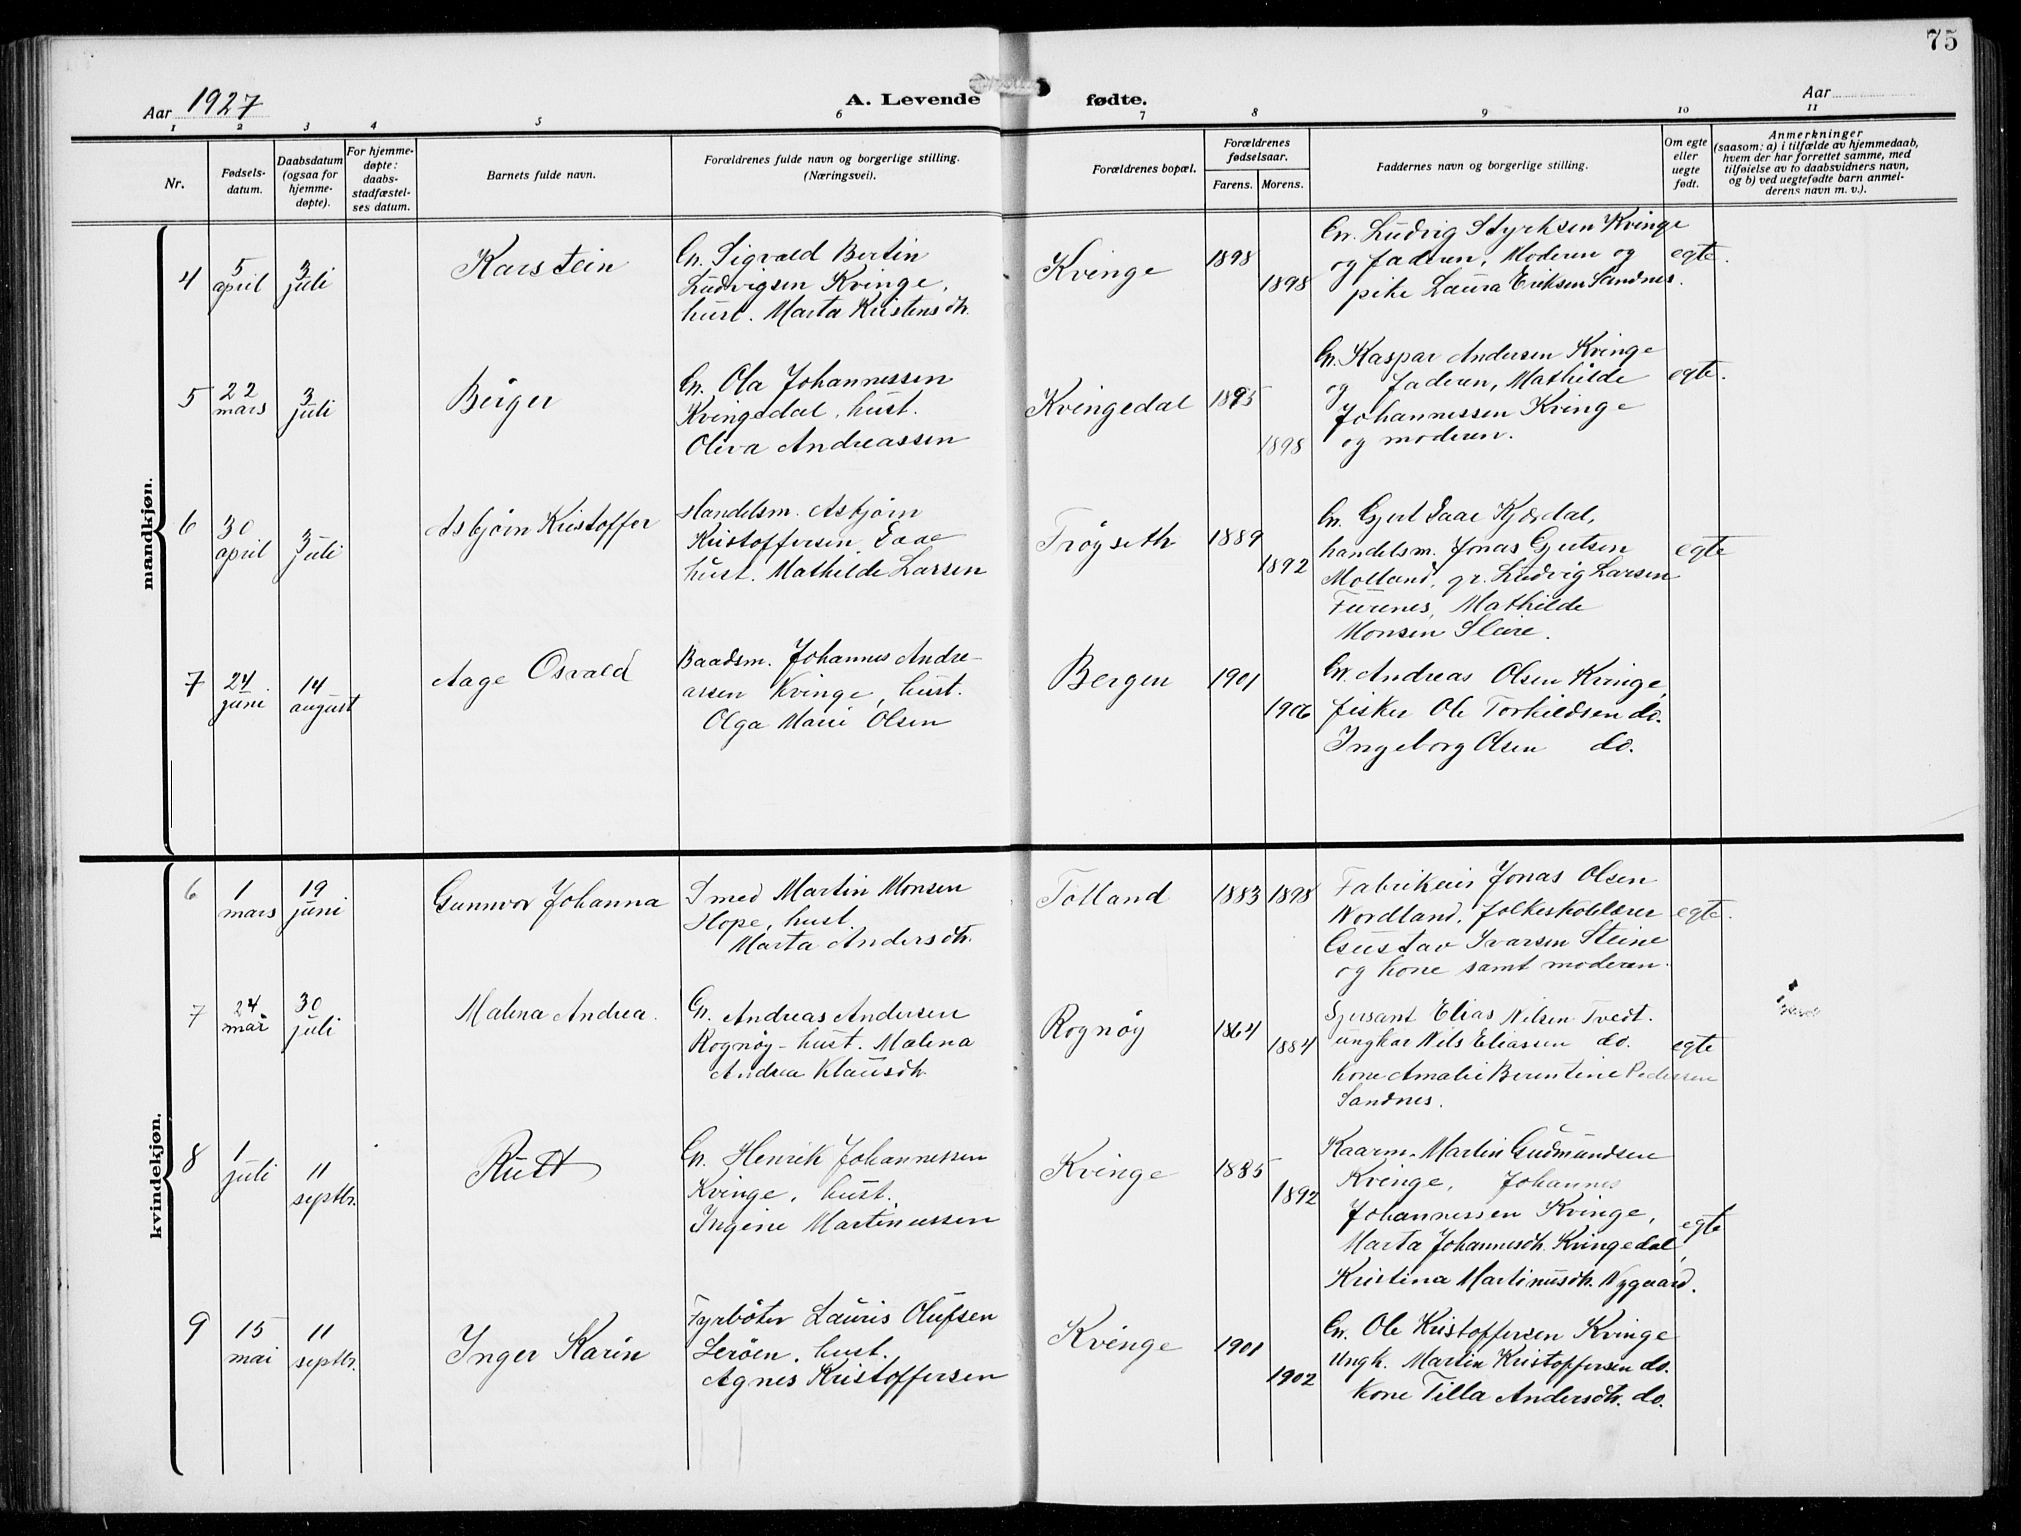 75
Aar 1927
A. Levende fødte.
Aar
1 2 3 4 5 6 7 8 9 10 11
Nr.
Fødsels-
datum.
Daabsdatum
(ogsaa for
hjemme-
døpte).
For hjemme-
døpte:
daabs-
stadfæstel-
ses datum.
Barnets fulde navn.
Forældrenes fulde navn og borgerlige stilling.
(Næringsvei).
Forældrenes bopæl.
Forældrenes
fødselsaar.
Farens. Morens.
Faddernes navn og borgerlige stilling.
Om egte
eller
uegte
født.
Anmerkninger
(saasom: a) i tilfælde av hjemmedaab,
hvem der har forrettet samme, med
tilføielse av to daabsvidners navn,
og b) ved uegtefødte barn anmel-
derens navn m. v.).
mandkjøn.
4
5
april
3
juli
Karstein
Gr. Sigvald Bertin
Ludvigsen Kvinge,
hust. Marta Kristensdtr.
Kvinge
1898
1898
Gr. Ludvig Styrksen Kvinge
og faderen, Moderen og
pike Laura Eriksen Sandnes.
egte.
5
22
mars
3
juli
Birger
Gr. Ola Johannessen
Kvingedal, hust.
Oliva Andreassen
Kvingedal
1895
1898
Gr. Kaspar Andersen Kvinge
og faderen, Mathilde
Johannessen Kvinge
og moderen.
egte.
6
30
april
3
juli
Asbjørn Kristoffer
Handelsm. Asbjørn
Kristoffersen
hust. Mathilde Larsen
Trøyseth
1889
1892
Gr. Gjert
handelsm. Jonas Gjertsen
Molland, gr. Ludvig Larsen
Furenes, Mathilde
Monsen Sleire.
egte
7
24
juni
14
august
Aage Osvald
Baadsm. Johannes Andre-
assen Kvinge, hust.
Olga Marie Olsen
Bergen
1901
1906
Gr. Andreas Olsen Kvinge,
fisker Ole Torkildsen do.
Ingeborg Olsen do.
kvindekjøn.
6
1
mars
19
juni
Gunnvor Johanna
Smed Martin Monsen
Hope, hust.
Marta Andersdtr.
Tolland
1883
1898
Fabrikeier Jonas Olsen
Nordland, folkeskolelærer
Gustav Ivarsen Steine
og kone samt moderen.
egte.
7
24
mar
30
juli
Malena Andrea.
Gr. Andreas Andersen
Rognøy - hust. Malena
Andrea Klausdtr.
Rognøy
1864
1884
Sersant Elias Nilsen Tvedt.
ungkar Nils Eliassen do.
kone Amalie Berentine Pedersen
Sandnes.
egte
8
1
juli
11
septbr.
Rutt
Gr. Henrik Johannessen
Kvinge, hust.
Ingine Martinussen
Kvinge
1885
1892
Kaarm. Martin Gudmundsen
Kvinge, Johannes
Johannessen Kvinge,
Marta Johannesdtr. Kvingedal
Kristina Martinusdtr. Nygaard.
egte
9
15
mai
11
septbr.
Inger Karin
Fyrbøter Lauris Olufsen
Lerøen, hust.
Agnes Kristoffersen
Kvinge
1901
1902
Gr. Ole Kristoffersen Kvinge
Ungk. Martin Kristoffersen do.
kone Tilla Andersdtr. do.